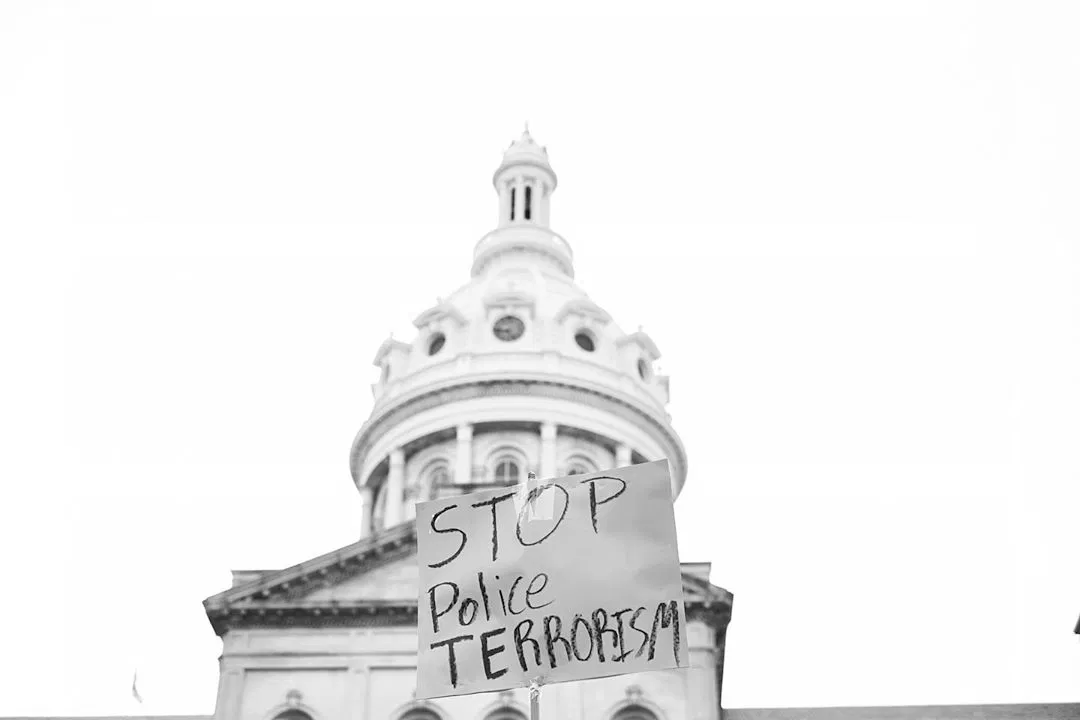 STOP
Police
TERRORISM